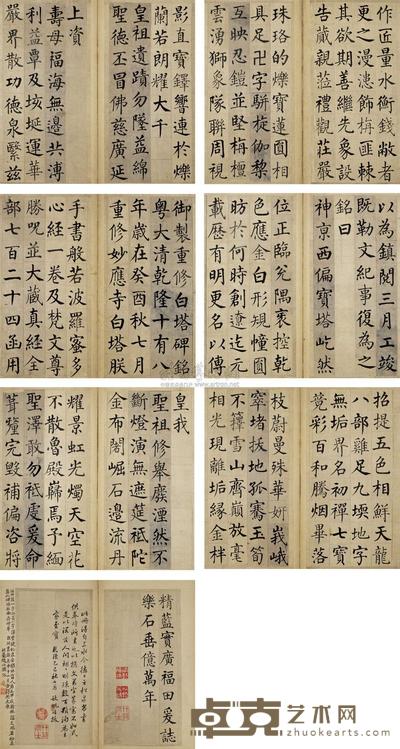 作匠量水衡錢敝者
更之漫漶飾
其欲期善繼先象設
告蕆親蒞禮觀莊嚴
珠珞的爍寶蓮圓相
具足卍字駢旋伽黎
互映忍鎧並堅栴檀
雲湧獅象隊聯周視
影直寶鐸響連於爍
蘭若朗耀大千
皇祖遺蹟勿墜益綿
聖德丕冒佛慈廣延
上資
壽母福海無邊共溥
利益覃及埏運華
嚴界散功德泉繄兹
以為鎮閱三月工竣
既勒文紀事復為之
銘曰
神京西偏寶塔屹然
位正臨兊隅表控乾
色應金白形規幢圓
昉於何時創遼迄元
載歷有明更名以傳
御製重修白塔碑銘
粵大清乾隆十有八
年歲在癸酉秋七月
重修妙應寺白塔朕
手書般若波羅蜜多
心經一卷及梵文尊
勝咒並大藏真經全
部七百二十四函用
招提五色相鮮天龍
八部雞足九壖地字
無垢界名初禪七寶
竟彩百和騰烟畢落
枝蔚曼殊華妍峩峩
窣堵拔地孤騫玉筍
不籜雪山齊巔放毫
相光現離垢緣金柈
皇我
聖祖修舉廢湮然不
斷燈演無遮莚祗陀
金布闍崛石邊流丹
耀景虹光燭天空花
不散魯殿巋焉予緬
聖澤敢勿祗虔爰命
葺釐完毀補偏咨將
精藍寶廣福田爰誌
樂石垂億萬年
艺术网